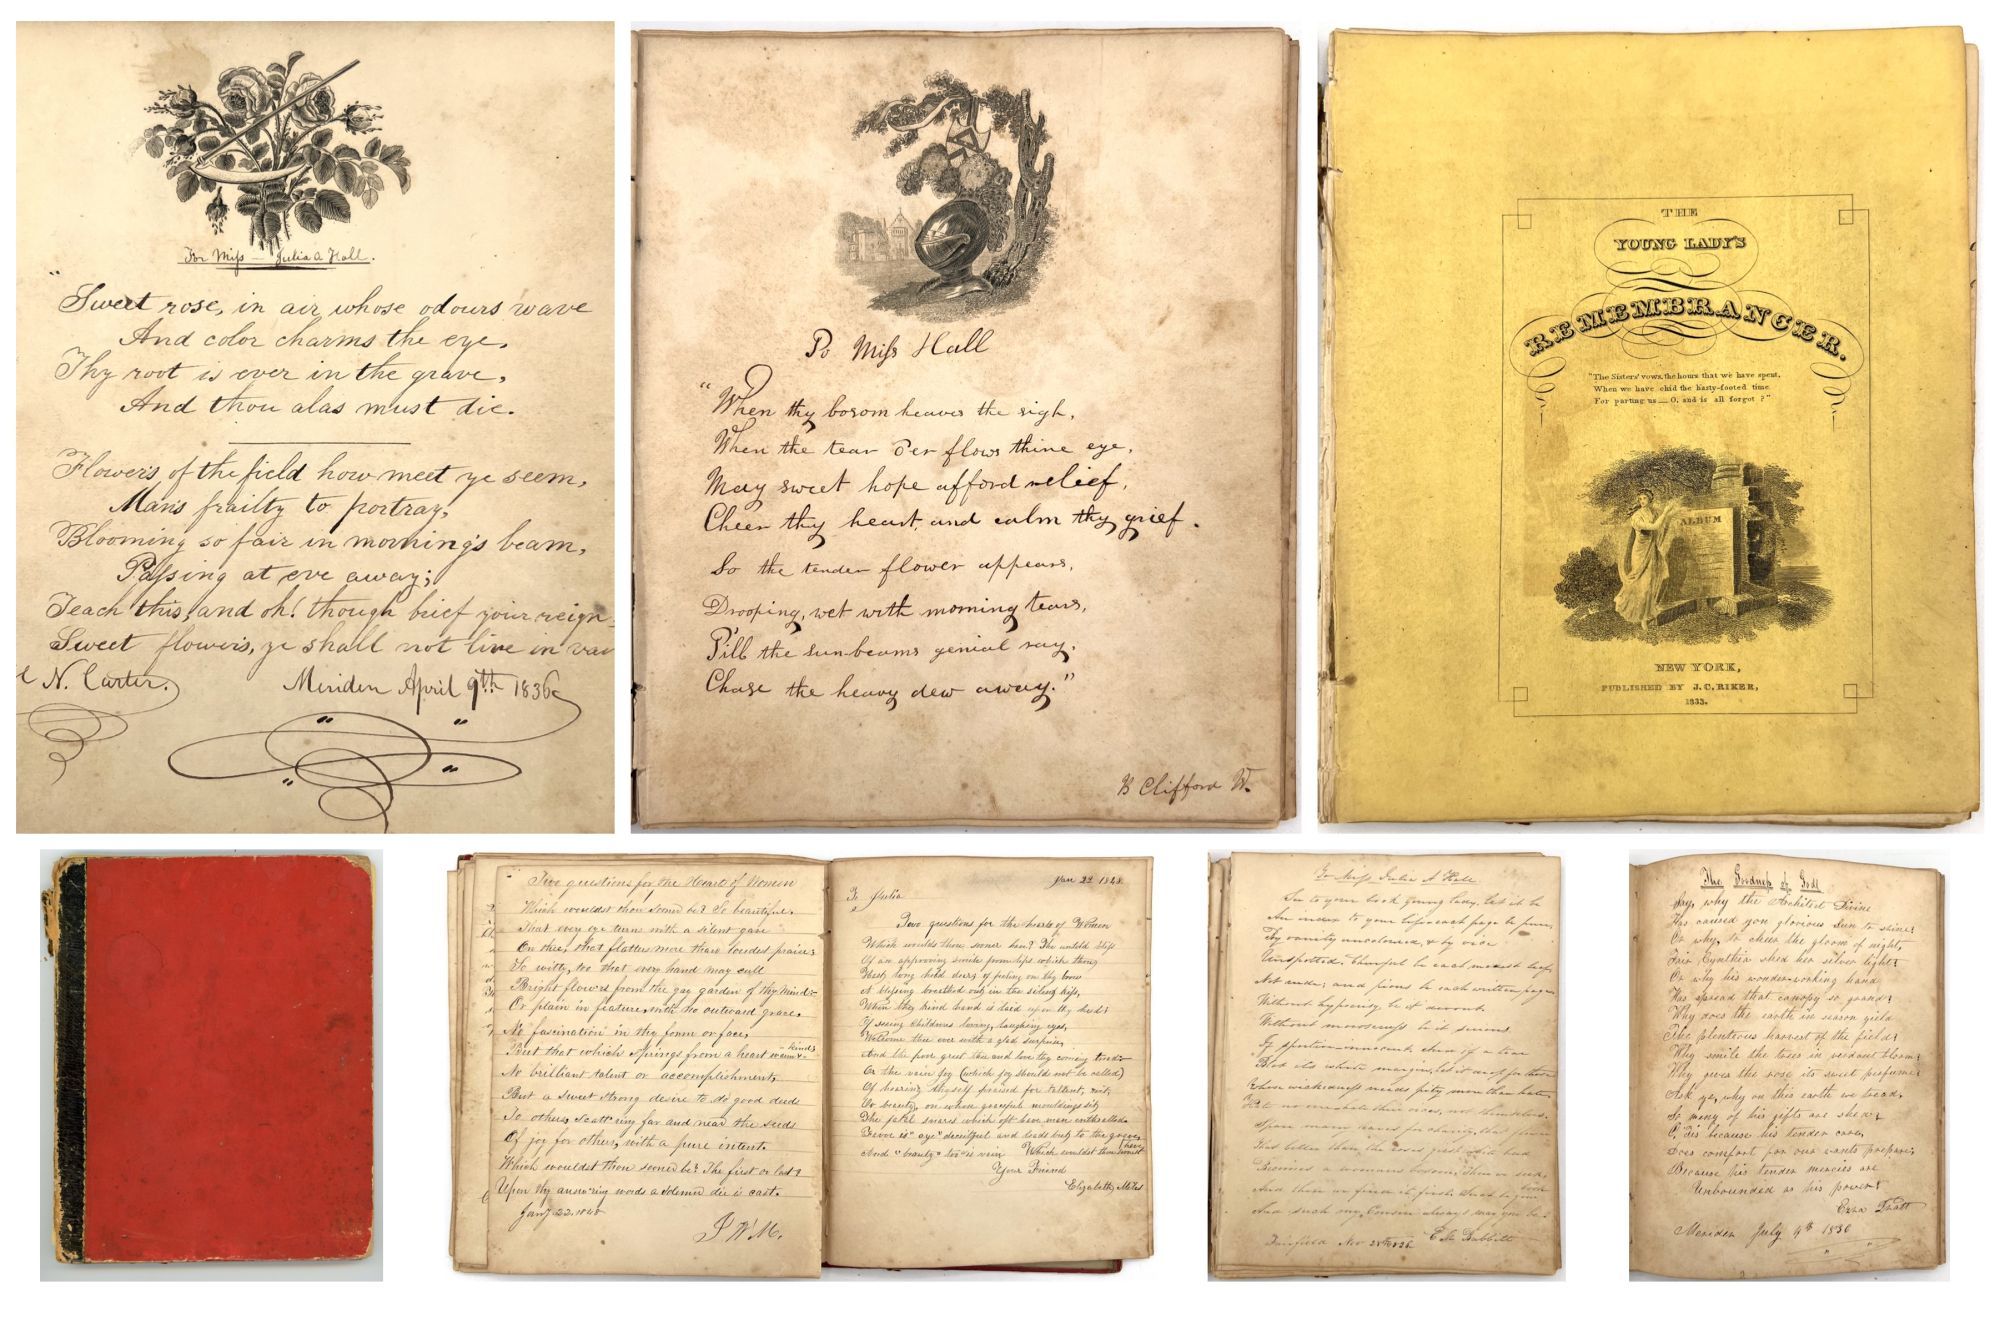 For Miss — Julia A Hall.
"Sweet rose, in air whose odours wave
And color charms the eye,
Thy root is ever in the grave,
And thou alas must die.
Flowers of the field how meet ye seem,
Man's frailty to portray,
Blooming so fair in morning's beam,
Passing at eve away;
Teach this, and oh! though brief your reign
Sweet flowers, ye shall not live in vain
N. Carter. Meriden April 9th 1836
To Miss Hall
"When thy bosom heaves the sigh,
When the tear o'er flows thine eye,
May sweet hope afford relief,
Cheer thy heart, and calm thy grief.
So the tender flower appears,
Drooping, wet with morning tears,
Till the sun-beams genial ray,
Chase the heavy dew away."
B Clifford W.
THE
YOUNG LADY'S
REMEMBRANCER.
"The Sisters' vows, the hours that we have spent,
When we have chid the hasty-footed time
For parting us—O, and is all forgot?"
ALBUM
NEW YORK,
PUBLISHED BY J. C. RIKER,
1833.
Two questions for the Heart of Women
Which wouldst thou sooner be? So beautiful,
That every eye turns with a silent gaze
On thee, that flatters more than loudest praise;
So witty, too that every hand may cull
Bright flowers from the gay garden of thy Mind:-
Or plain in feature, with no outward grace,
No fascination in thy form or face,
But that which springs from a heart warm & - kind;
No brilliant talent or accomplishment,
But a sweet strong desire to do good deeds
To others, scatt'ring far and near the seeds
Of joy for others, with a pure intent.
Which wouldst thou sooner be? The first or last?
Upon thy answ'ring words a solemn die is cast.
Jany 22. 1848
J W M.
Jan 24 1848
To Julia
Two questions for the hearts of Women
Which wouldst thou sooner have? The untold bliss
Of an approving smile from lips which thou
Hast long held dear, of feeling on thy brow
A blessing breathed out in the silent kiss,
When thy kind hand is laid upon thy head;
Of seeing childrens loving, laughing eyes,
Welcome thee ever with a glad surprise,
And the poor greet thee and love thy coming tread:-
Or the vain joy (which joy should not be called)
Of hearing thyself praised for talent, wit,
Or beauty, on whose graceful mouldings sit
The fatal snares which oft have men enthralled
Favor is "aye" deceitful and leads but to the grave
And "beauty" too "is vain Which wouldst thou soonest have
Your Friend
Elizabeth Miles
To Miss Julia A Hall
In to your book young lady, let it be
An index to your life: each page be pure,
By vanity uncoloured, & by vice
Unspotted. Cheerful be each modest leaf,
Not rude; and pious be each written page,
Without hypocrisy, be it devout.
Without moroseness be it serious.
If sportive innocent. And if a tear
Blot its white margin, let it drop for those
Whose wickedness needs pity more than hate.
Hate no one hate their vices, not themselves.
Spare many leaves for charity, that flower
That better than the roses first white bud
Becomes a womans bosom. There we seek
And there we find it first. Such be your book
And such my Cousin always may you be.
Fairfield Nov 28th 1836 E. M. Babbitt
The Goodness of God
Say, why the Architect Divine
Has caused yon glorious Sun to shine?
Or why, to cheer the gloom of night,
Fair Cynthia shed her silver light?
Or why his wonder-working hand
Has spread that canopy so grand?
Why does the earth in season yield
The plenteous harvest of the field?
Why smile the trees in verdant bloom?
Why gives the rose its sweet perfume?
Ask ye, why on this earth we tread,
So many of his gifts are shed?
O, Tis because his tender care,
Does comfort for our wants prepare;
Because his tender mercies are
Unbounded as his power!
Ezra Pratt
Meriden July 9th 1836